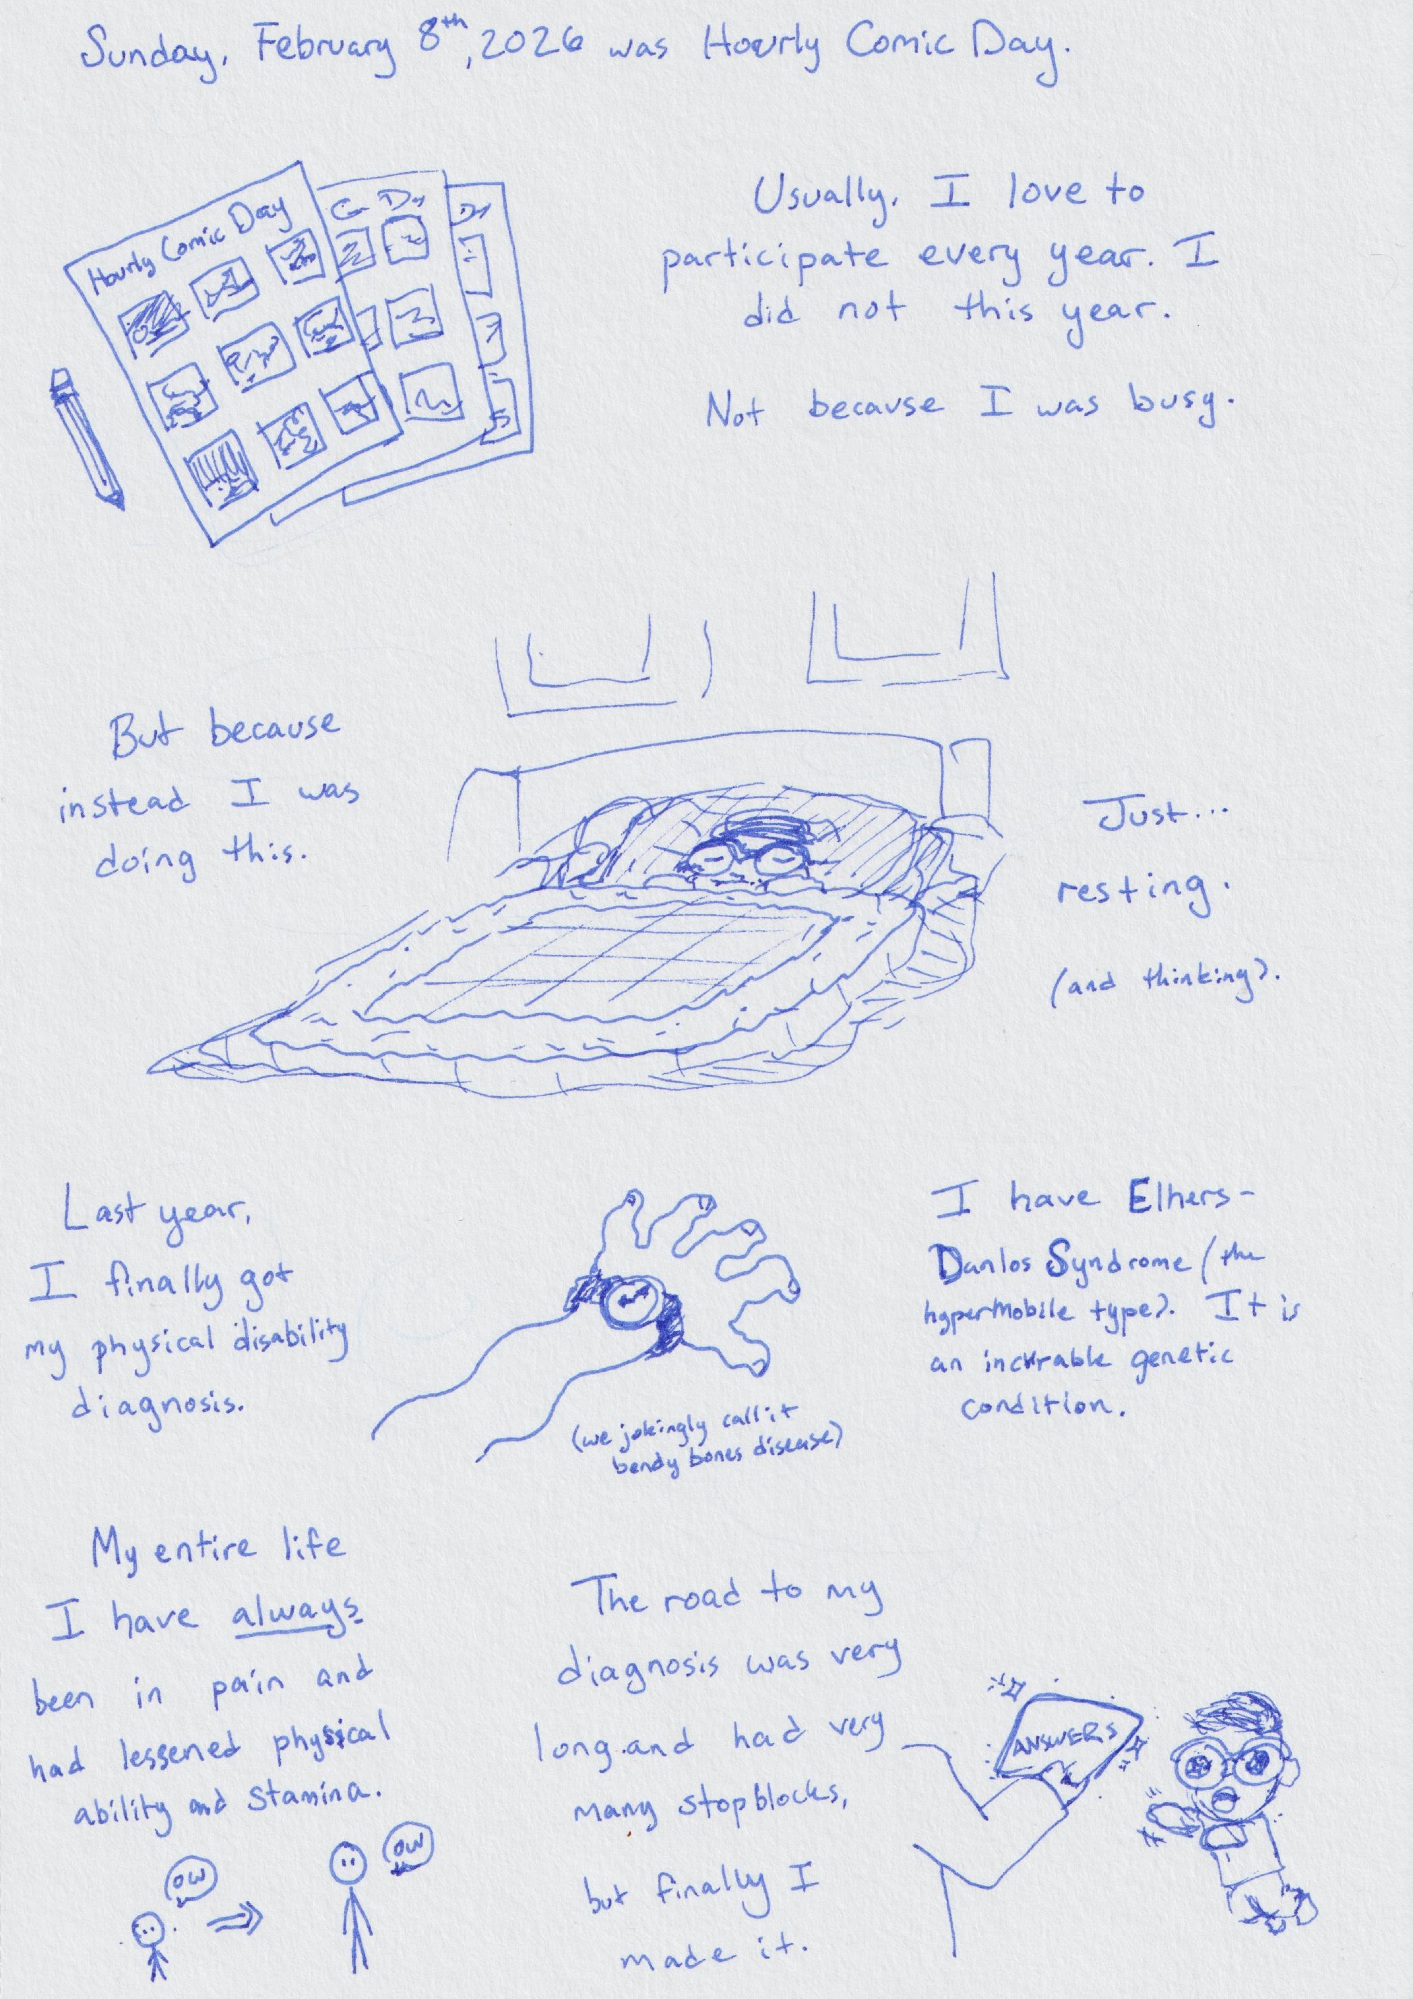 Sunday, February 8th, 2026 was Hourly Comic Day.
Hourly Comic Day
Usually, I love to
participate every year. I
did not this year.
Not because I was busy.
But because
instead I was
doing this.
Just...
resting.
(and thinking).
Last year,
I finally got
my physical disability
diagnosis.
(we jokingly call it
bendy bones disease)
I have Elhers-
Danlos Syndrome (the
hypermobile type). It is
an incurable genetic
condition.
My entire life
I have always
been in pain and
had lessened physical
ability and stamina.
OW
OW
The road to my
diagnosis was very
long and had very
many stopblocks,
but finally I
made it.
ANSWERS